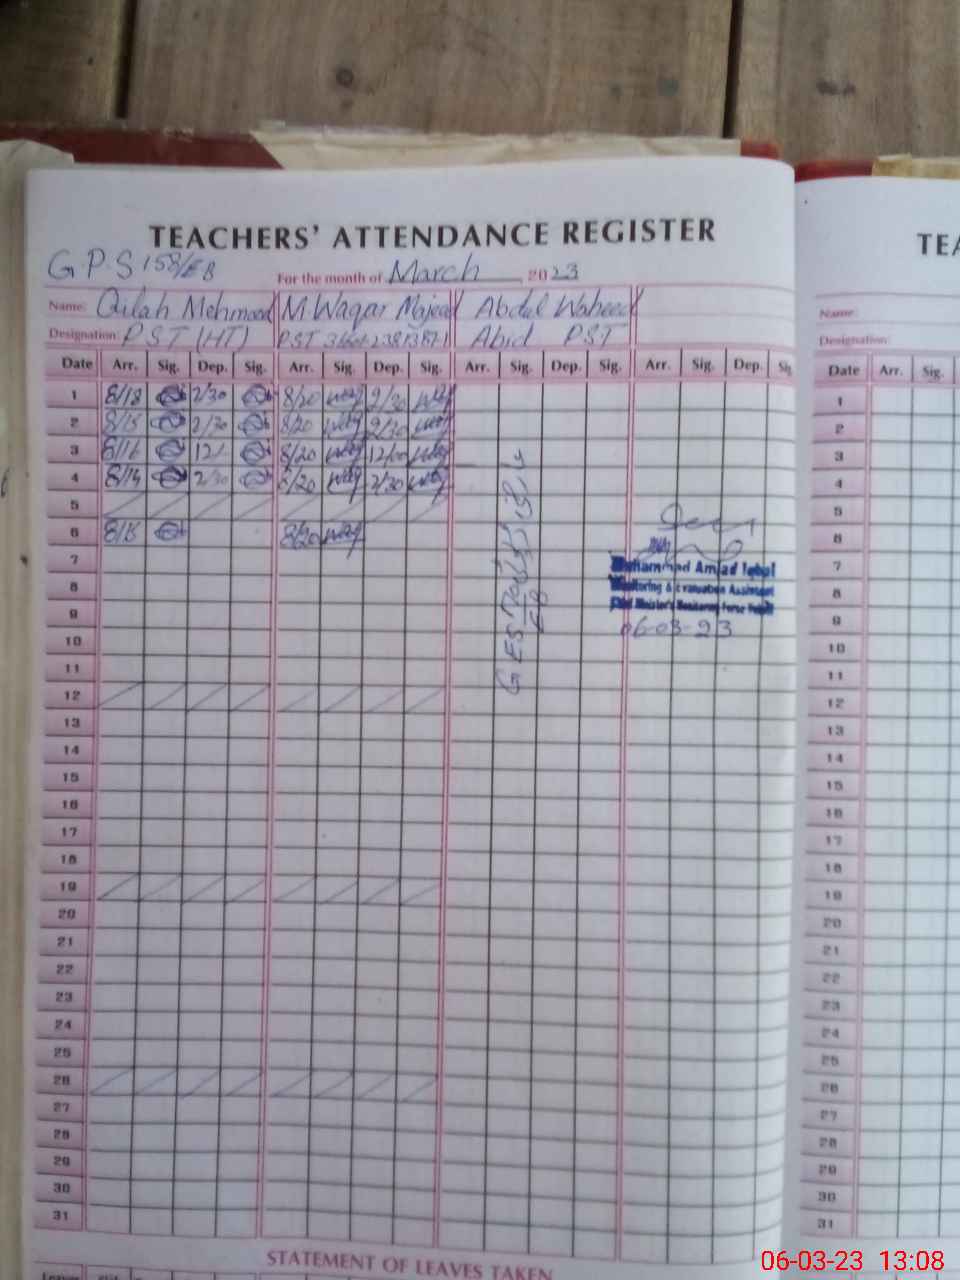 TEACHERS' ATTENDANCE REGISTER
G.P.S 158/EB
For the month of March 2023
Name: Qilah Mehmood M. Waqar Majeed Abdul Waheed
Designation: PST (HT) PST Abid PST
Date Arr. Sig. Dep. Sig. Arr. Sig. Dep. Sig. Arr. Sig. Dep. Sig. Arr. Sig. Dep. Sig
1 8/18 2/30 8/20 2/30
2 8/15 2/30 8/20 2/30
3 8/16 12/- 8/20 12/00
4 8/14 2/30 8/20 2/30
5
6 8/15 8/20
7
8
9
10
11
12
13
14
15
16
17
18
19
20
21
22
23
24
25
26
27
28
29
30
31
GES
EB
Muhammad Amjad Iqbal
Monitoring & Evaluation Assistant
Chief Minister's Monitoring Force
06-03-23
STATEMENT OF LEAVES TAKEN
Leaves
TEA
Name:
Designation:
Date Arr. Sig.
1
2
3
4
5
6
7
8
9
10
11
12
13
14
15
16
17
18
19
20
21
22
23
24
25
26
27
28
29
30
31
06-03-23 13:08